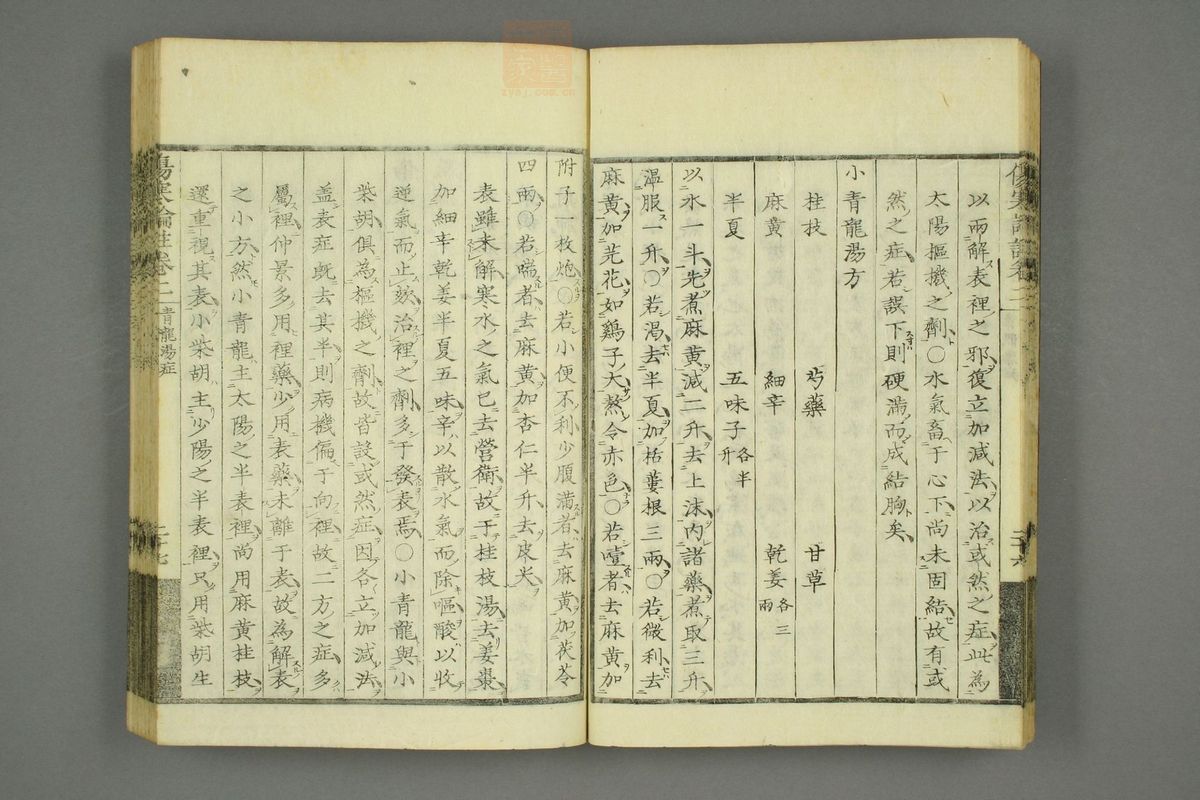 以兩解表裡之邪復立加減法以治或然之症此為
太陽樞機之劑〇水氣畜于心下尚未固結故有或
然之症若誤下則硬滿而成結胸矣
小青龍湯方
桂枝 芍藥 甘草
麻黃 細辛 乾姜各三兩
半夏 五味子各半升
以水一斗先煮麻黃減二升去上沫内諸藥煮取三升
溫服一升〇若渴去半夏加栝蔞根三兩〇若微利去
麻黃加芫花如鷄子大熬令赤色〇若噎者去麻黃加
附子一枚炮〇若小便不利少腹滿者去麻黃加茯苓
四兩〇若喘者去麻黃加杏仁半升去皮尖
表雖未解寒水之氣已去營衛故于桂枝湯去姜棗
加細辛乾姜半夏五味辛以散水氣而除嘔酸以收
逆氣而止欬治裡之劑多于發表焉〇小青龍與小
柴胡俱為樞機之劑故皆設或然症因各立加減法
盖表症既去其半則病機偏于向裡故二方之症多
屬裡仲景多用裡藥少用表藥未離于表故為解表
之小方然小青龍主太陽之半表裡尚用麻黃桂枝
還重視其表小柴胡主少陽之半表裡只用柴胡生
傷寒論註卷二 青龍湯症 二十七